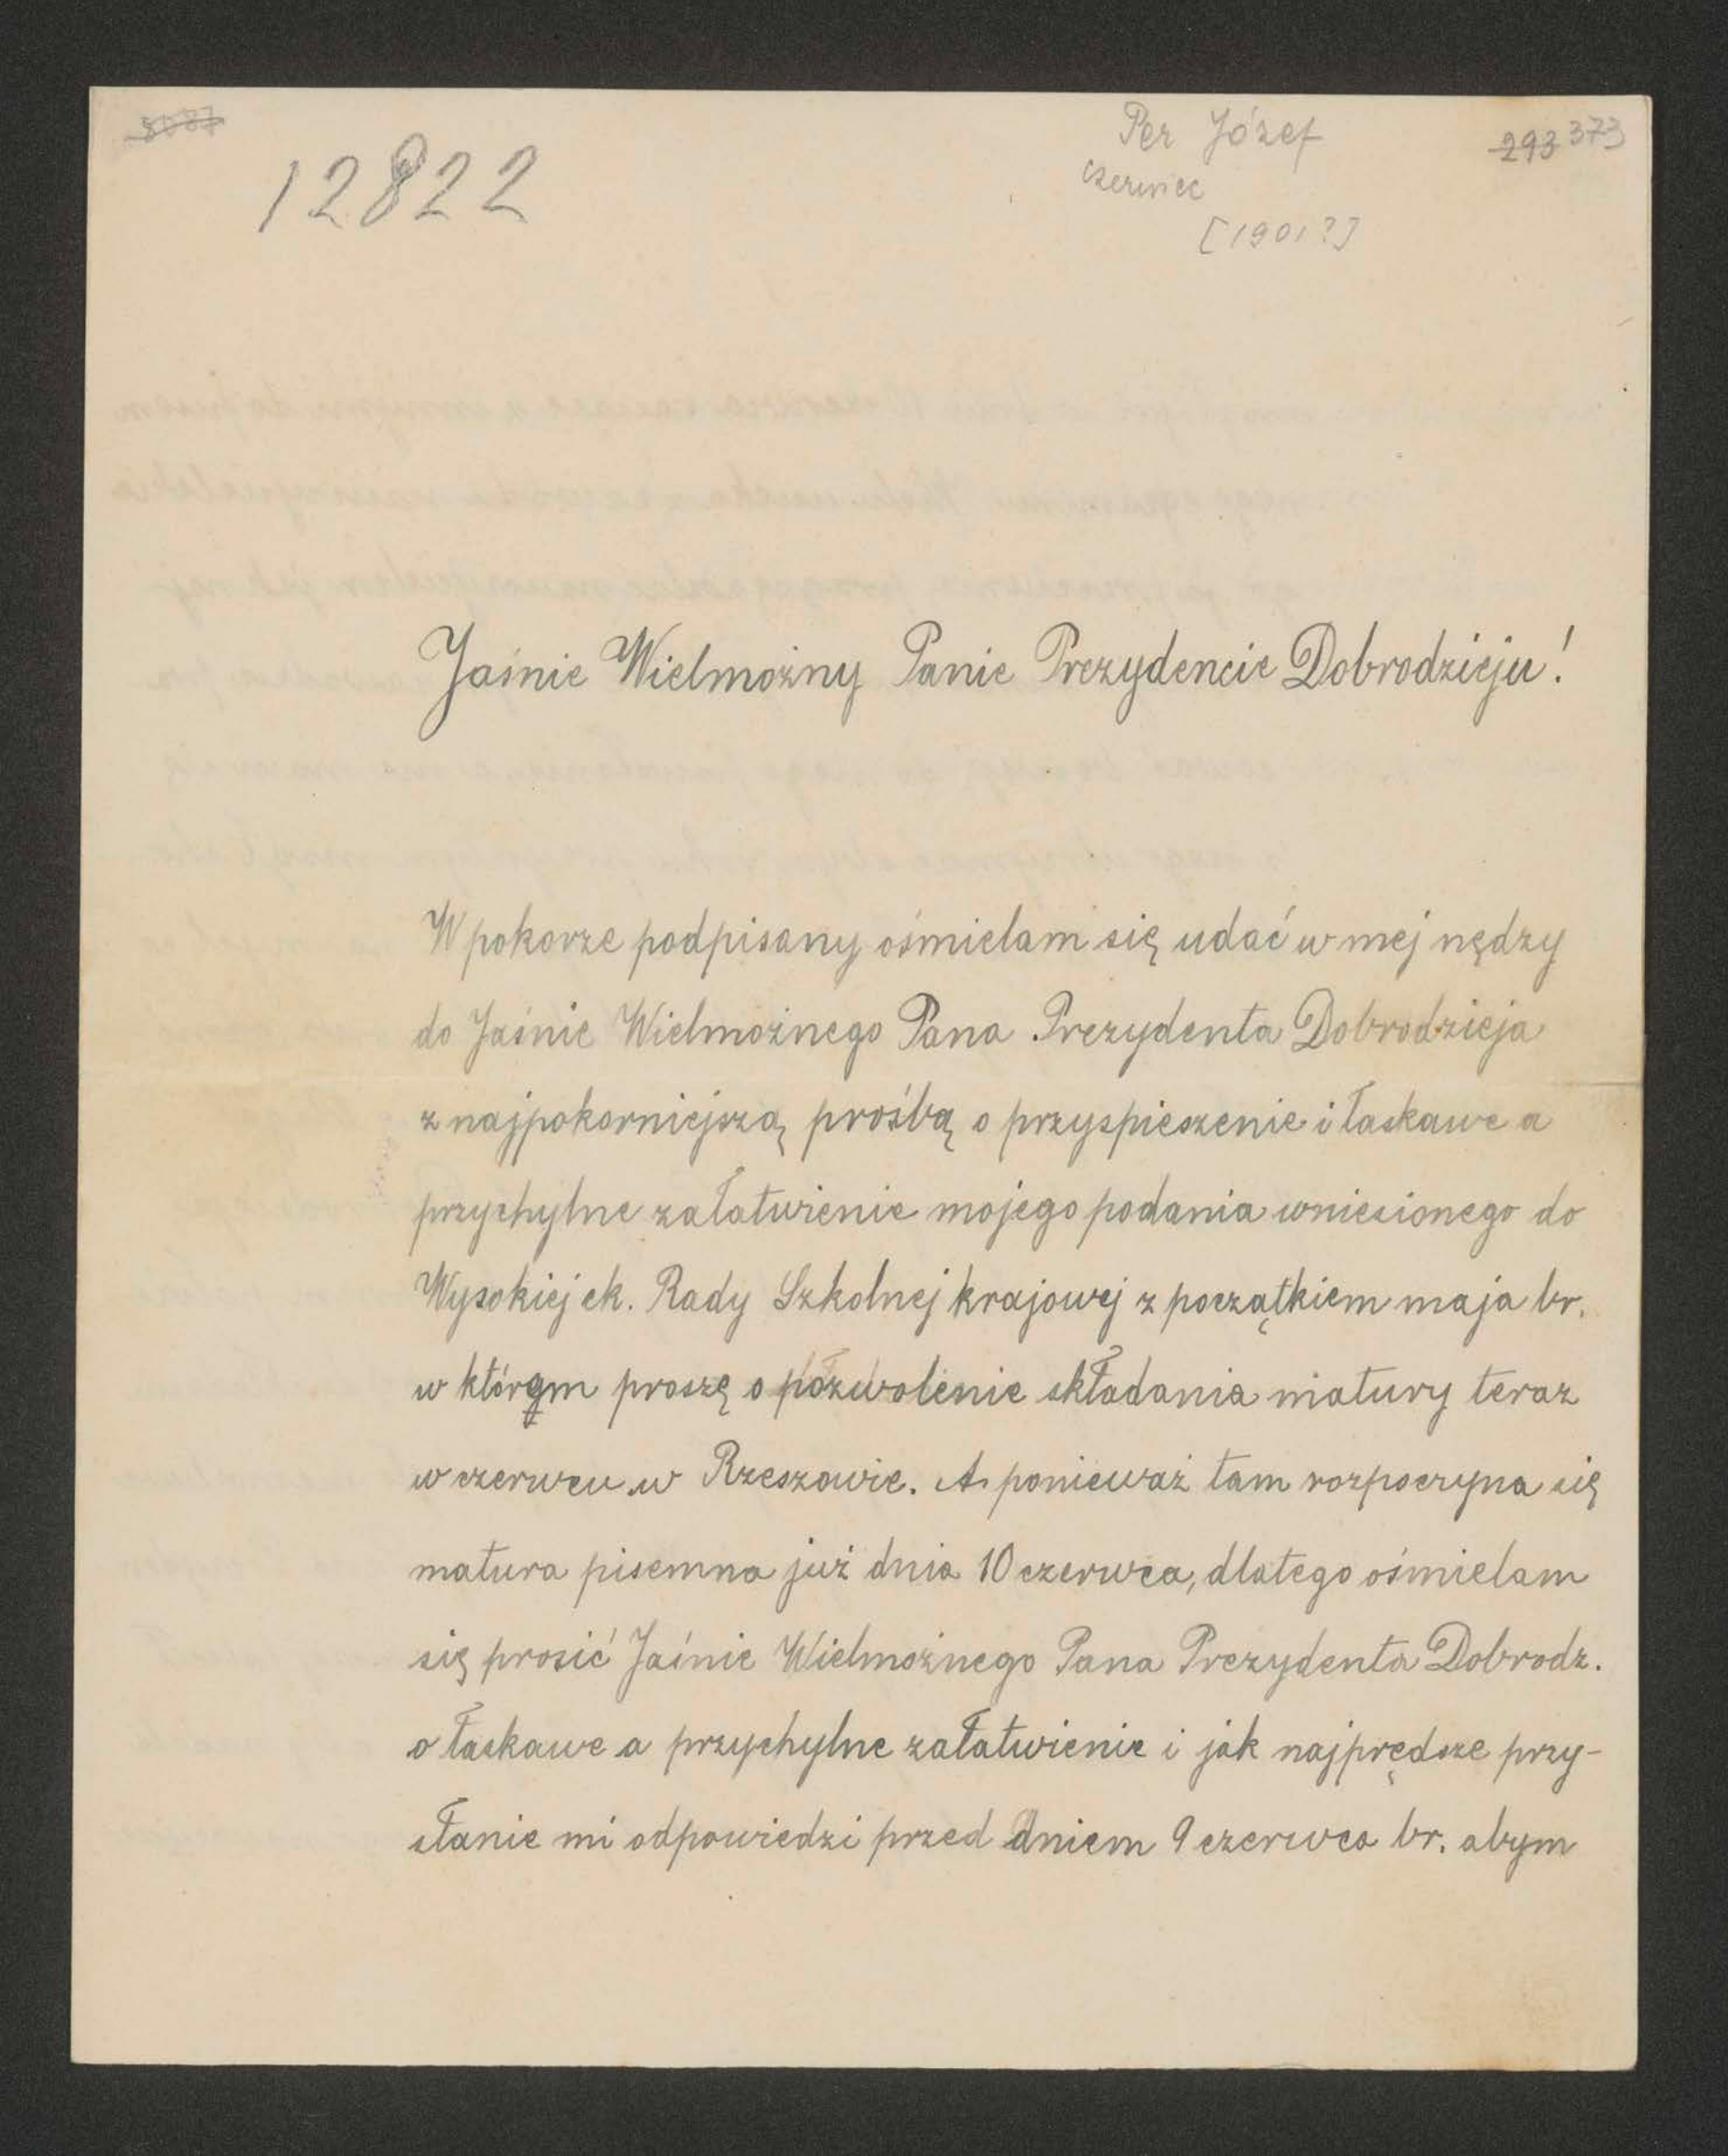 12822
Per Józef
czerwiec
[1901?]
293 373
Jaśnie Wielmożny Panie Prezydencie Dobrodzieju!
W pokorze podpisany ośmielam się udać w mej nędzy
do Jaśnie Wielmożnego Pana Prezydenta Dobrodzieja
z najpokorniejszą prośbą o przyspieszenie i łaskawe a
przychylne załatwienie mojego podania wniesionego do
Wysokiej ck. Rady Szkolnej krajowej z początkiem maja br.
w którym proszę o pozwolenie składania matury teraz
w czerwcu w Rzeszowie. A ponieważ tam rozpoczyna się
matura pisemna już dnia 10 czerwca, dlatego ośmielam
się prosić Jaśnie Wielmożnego Pana Prezydenta Dobrodz.
o łaskawe a przychylne załatwienie i jak najprędsze przy-
słanie mi odpowiedzi przed dniem 9 czerwca br. abym